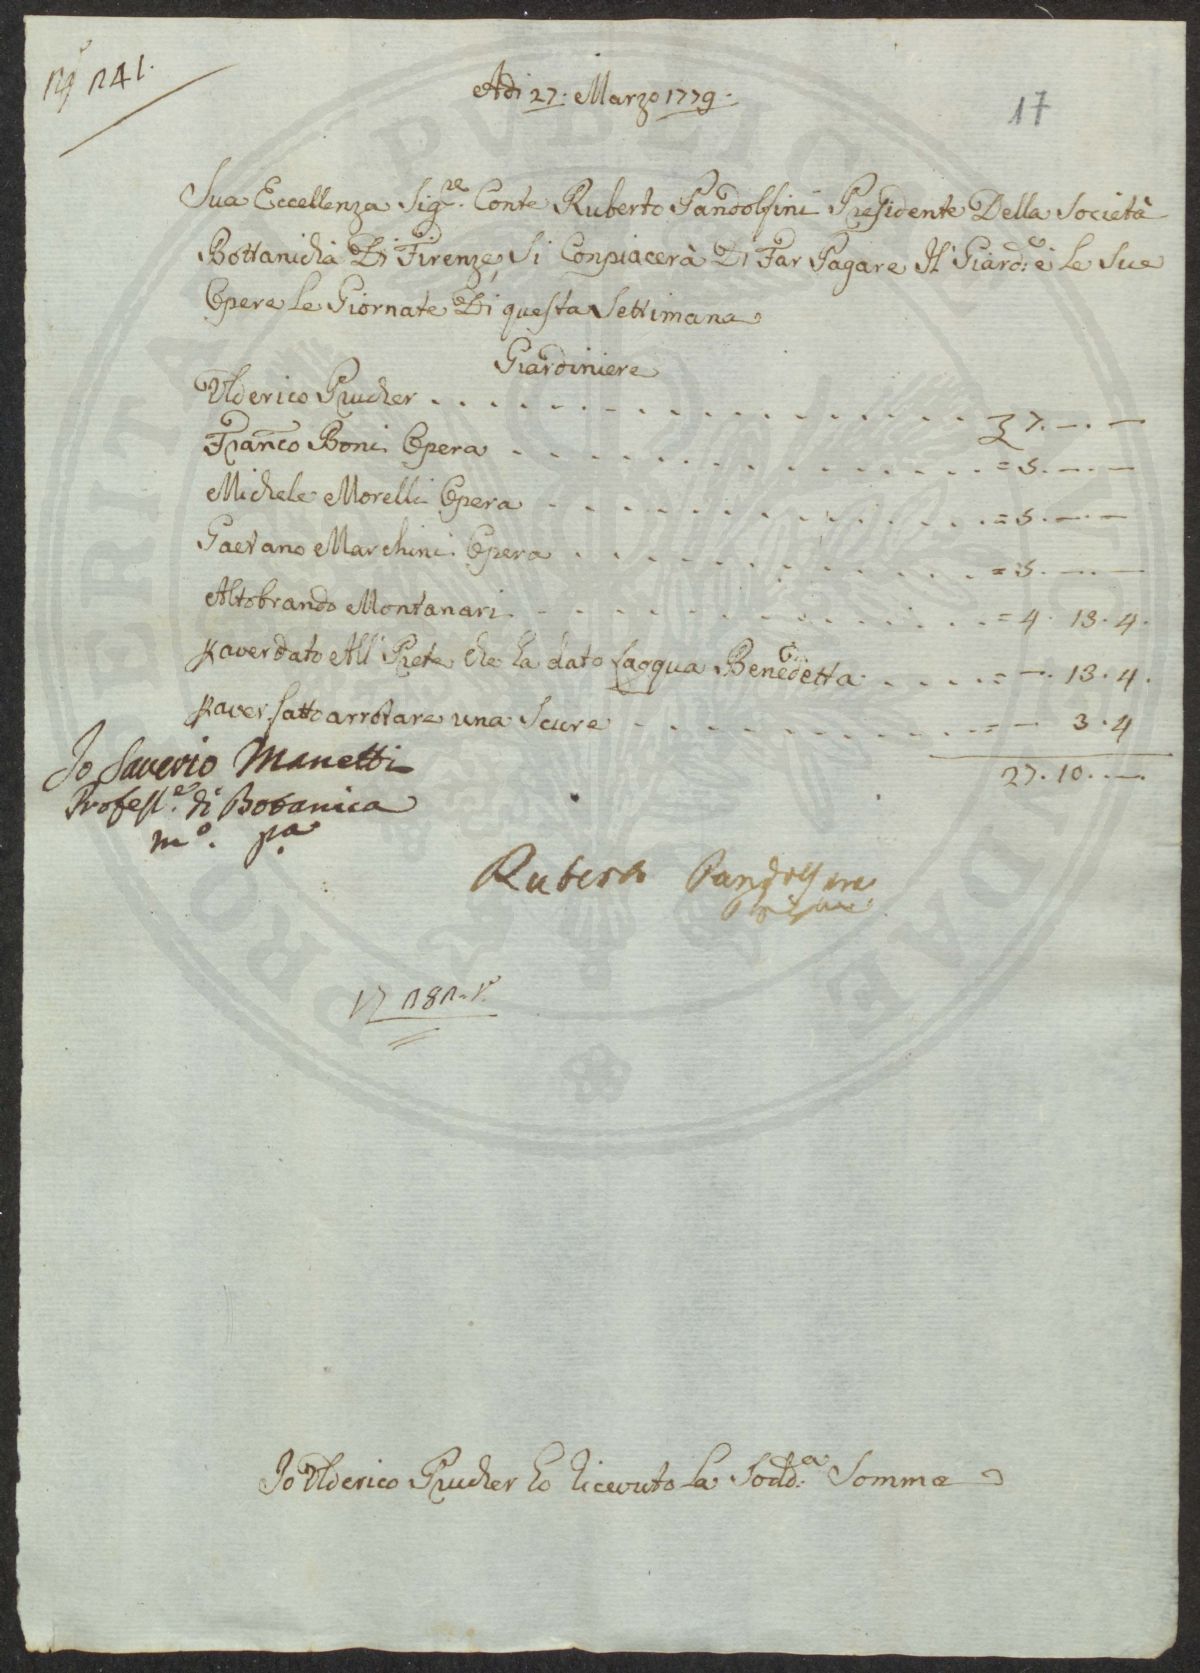 Adi 27. Marzo 1779.
17
Sua Eccellenza Sig.re Conte Ruberto Pandolfini Presidente Della Società
Bottanicha Di Firenze, Si Conpiacerà Di Far Pagare Il Giard.e e Le Sue
Opere Le Giornate Di questa Settimana
Giardiniere
Ulderico Prucher . . . . . . 7. —. —
Franco Boni Opera . . . . . . = 5. —. —
Michele Morelli Opera . . . . . . = 5. —. —
Gaetano Marchini Opera . . . . . . = 5. —. —
Altobrando Montanari . . . . . . = 4. 13. 4.
p aver dato All' Prete che ha dato Laoqua Benedetta . . . . = —. 13. 4.
p aver fatto arrotare una Scure . . . . . . = — 3. 4
27. 10. —.
Io Saverio Manetti
Profess.e di Botanica
m.o p.a
Ruberto Pandolfini
Io Ulderico Prucher ho ricevuto La Sodd.a Somma
PRO DEXTERITATE PUBLICAE UTILITATI